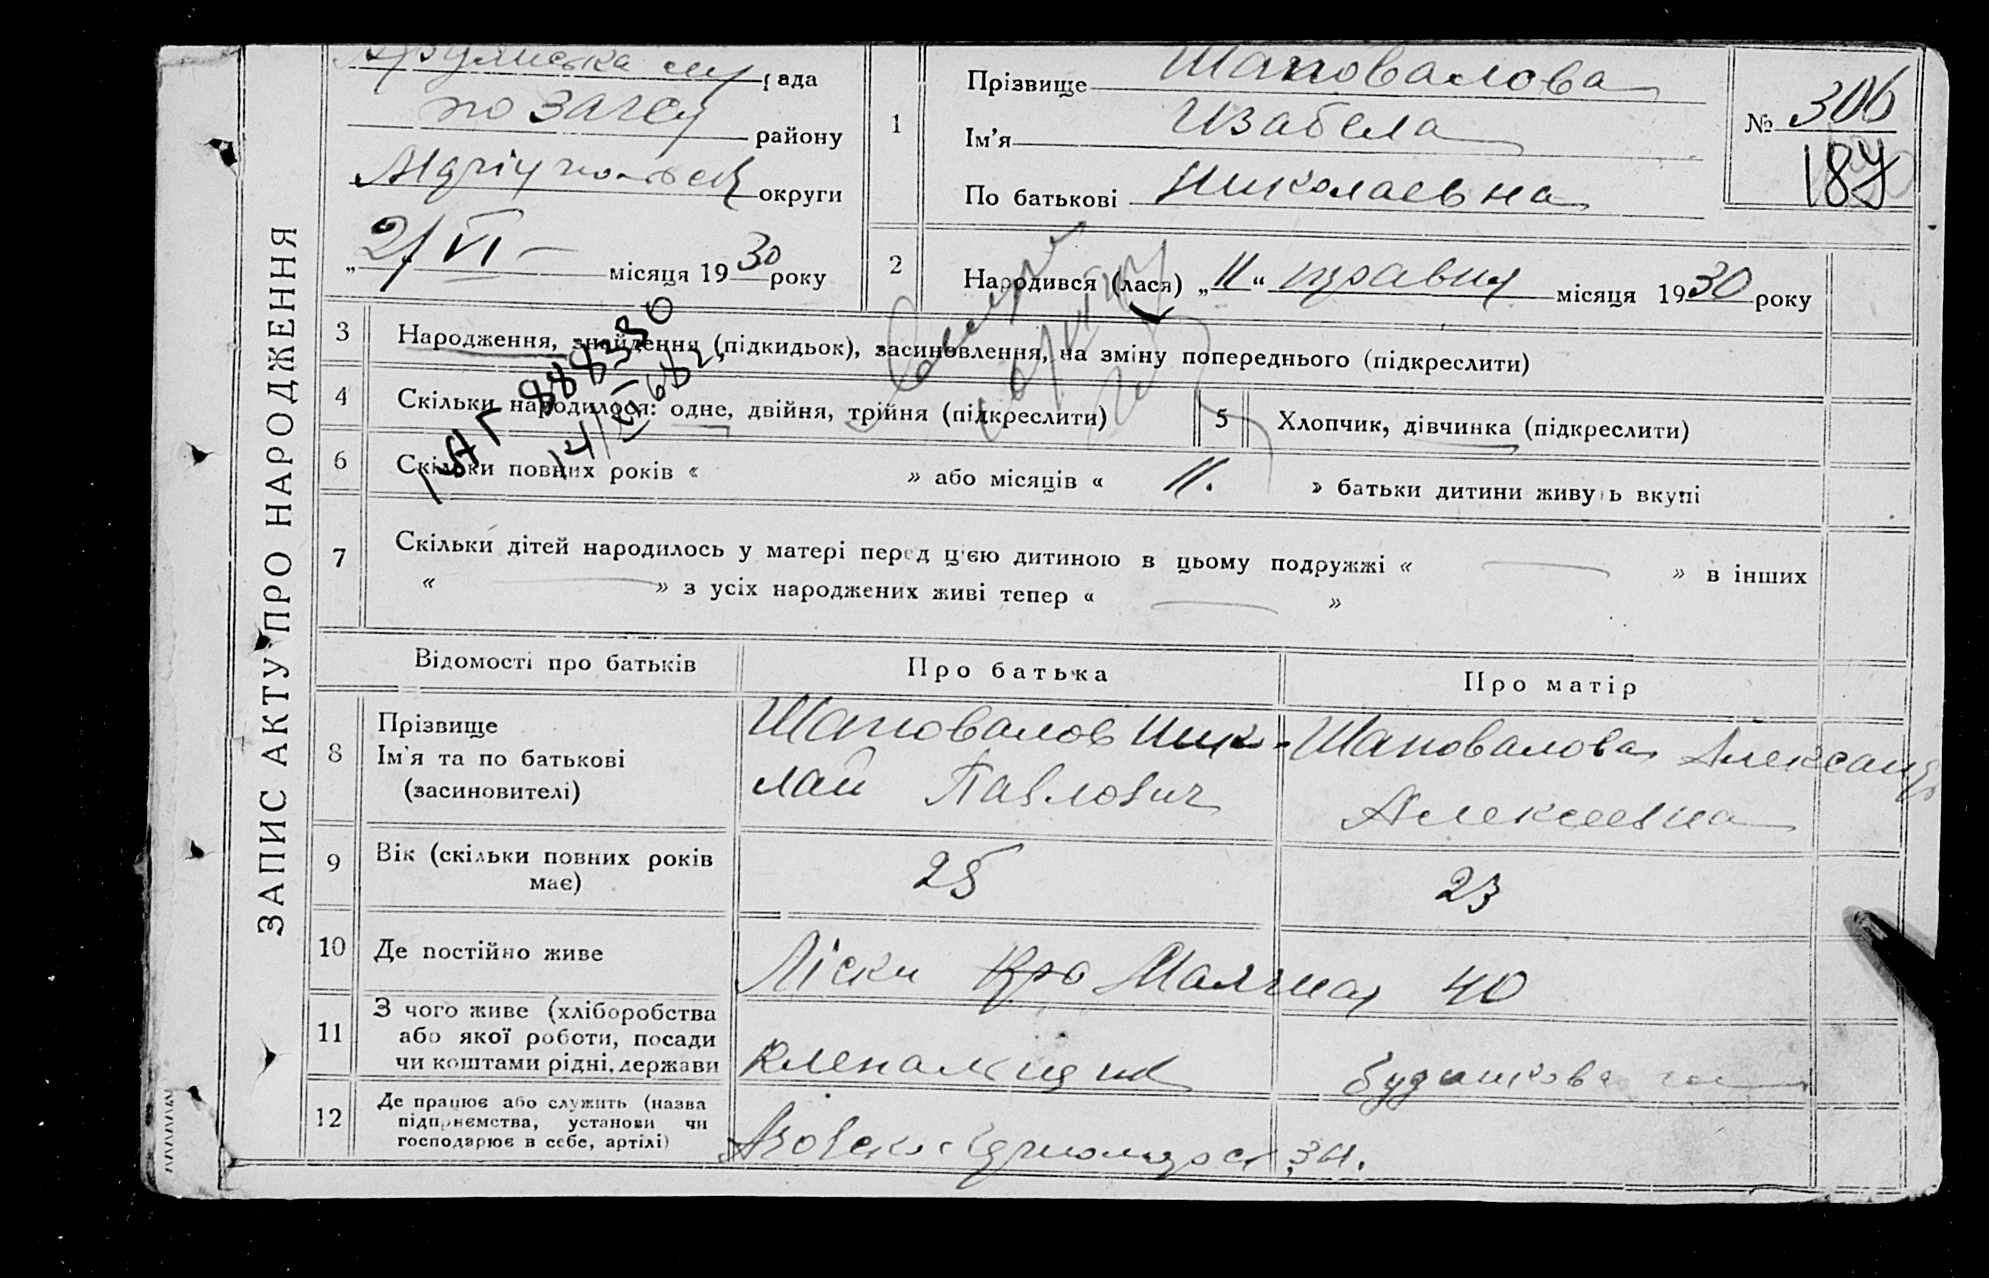 ЗАПИС АКТУ ПРО НАРОДЖЕННЯ
рада
по ЗАГСу
району
округи
„2/VI– місяця 1930 року
1
Прізвище Шаповалова
Ім'я Изабела
По батькові Николаевна
№ 306
187
2
Народився (лася) „11“ травня місяця 1930 року
3
Народження, знайдення (підкидьок), засиновлення, на зміну попереднього (підкреслити)
4
Скільки народилося: одне, двійня, трійня (підкреслити)
5
Хлопчик, дівчинка (підкреслити)
6
Скільки повних років « » або місяців « 11. » батьки дитини живуть вкупі
7
Скільки дітей народилось у матері перед цією дитиною в цьому подружжі « — » в інших
« — » з усіх народжених живі тепер « — »
Відомості про батьків
Про батька
Про матір
8
Прізвище
Ім'я та по батькові
(засиновителі)
Шаповалов Нико-
лай Павлович
Шаповалова Александра
Алексеевна
9
Вік (скільки повних років
має)
25
23
10
Де постійно живе
Ліски 40
11
З чого живе (хліборобства
або якої роботи, посади
чи коштами рідні, держави
12
Де працює або служить (назва
підприємства, установи чи
господарює в себе, артілі)